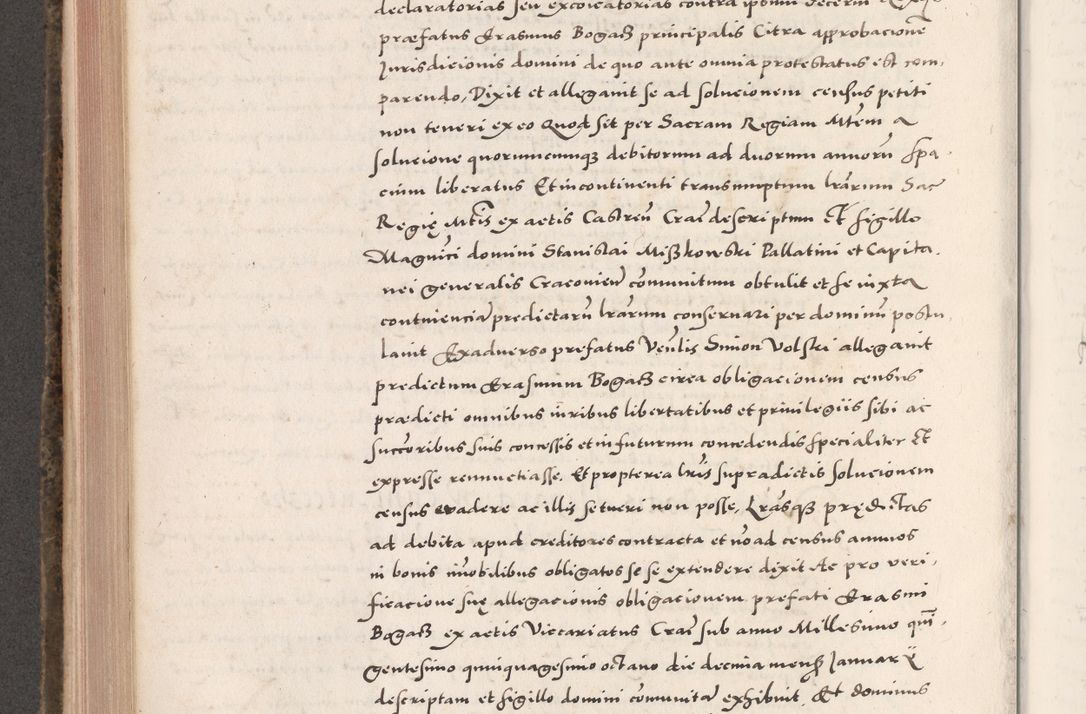 declaratorias seu excoicatorias contra ipsum decerni
præfatus Erasmus Bogasz principalis Citra approbacione
Jurisdicionis domini de quo ante omnia protestatus est com,
parendo, Dixit et allegavit se ad solucionem census petiti
non teneri ex eo Quod sit per Sacram Regiam Mtem a
solucione quorumcunqz debitorum ad duorum annoru spa,
cium liberatus Et incontinenti transumptum lrarum Sac
Regię Mtis ex actis Castren Crac descriptum Et sigillo
Magnici domini Stanislai Miszkowski Pallatini et Capita,
nei generalis Cracovien comunitum obtulit et se iuxta
continencia predictaru lrarum conservari per dominu postu,
lavit Exadverso prefatus Venlis Simon Volski allegavit
predictum Erasmum Bogasz circa obligacionem census
prædicti omnibus iuribus libertatibus et privilegiis sibi ac
succoribus suis concessis et in futurum concedendis specialiter Et
expresse renunctiasse, Et propterea lris supradictis solucionem
census evadere ac illis se tueri non posse, Lrasqz prędictas
ad debita apud creditores contracta et no ad census annuos
in bonis imobilibus obligatos se se extendere dixit Ac pro veri,
ficacione suę allegacionis obligacionem prefati Erasmi
Bogasz ex actis Viccariatus Crac sub anno Millesimo qui,
gentesimo quinquagesimo octavo die decima mens Januarii
descriptam et sigillo domini comunita exhibuit, Et dominus